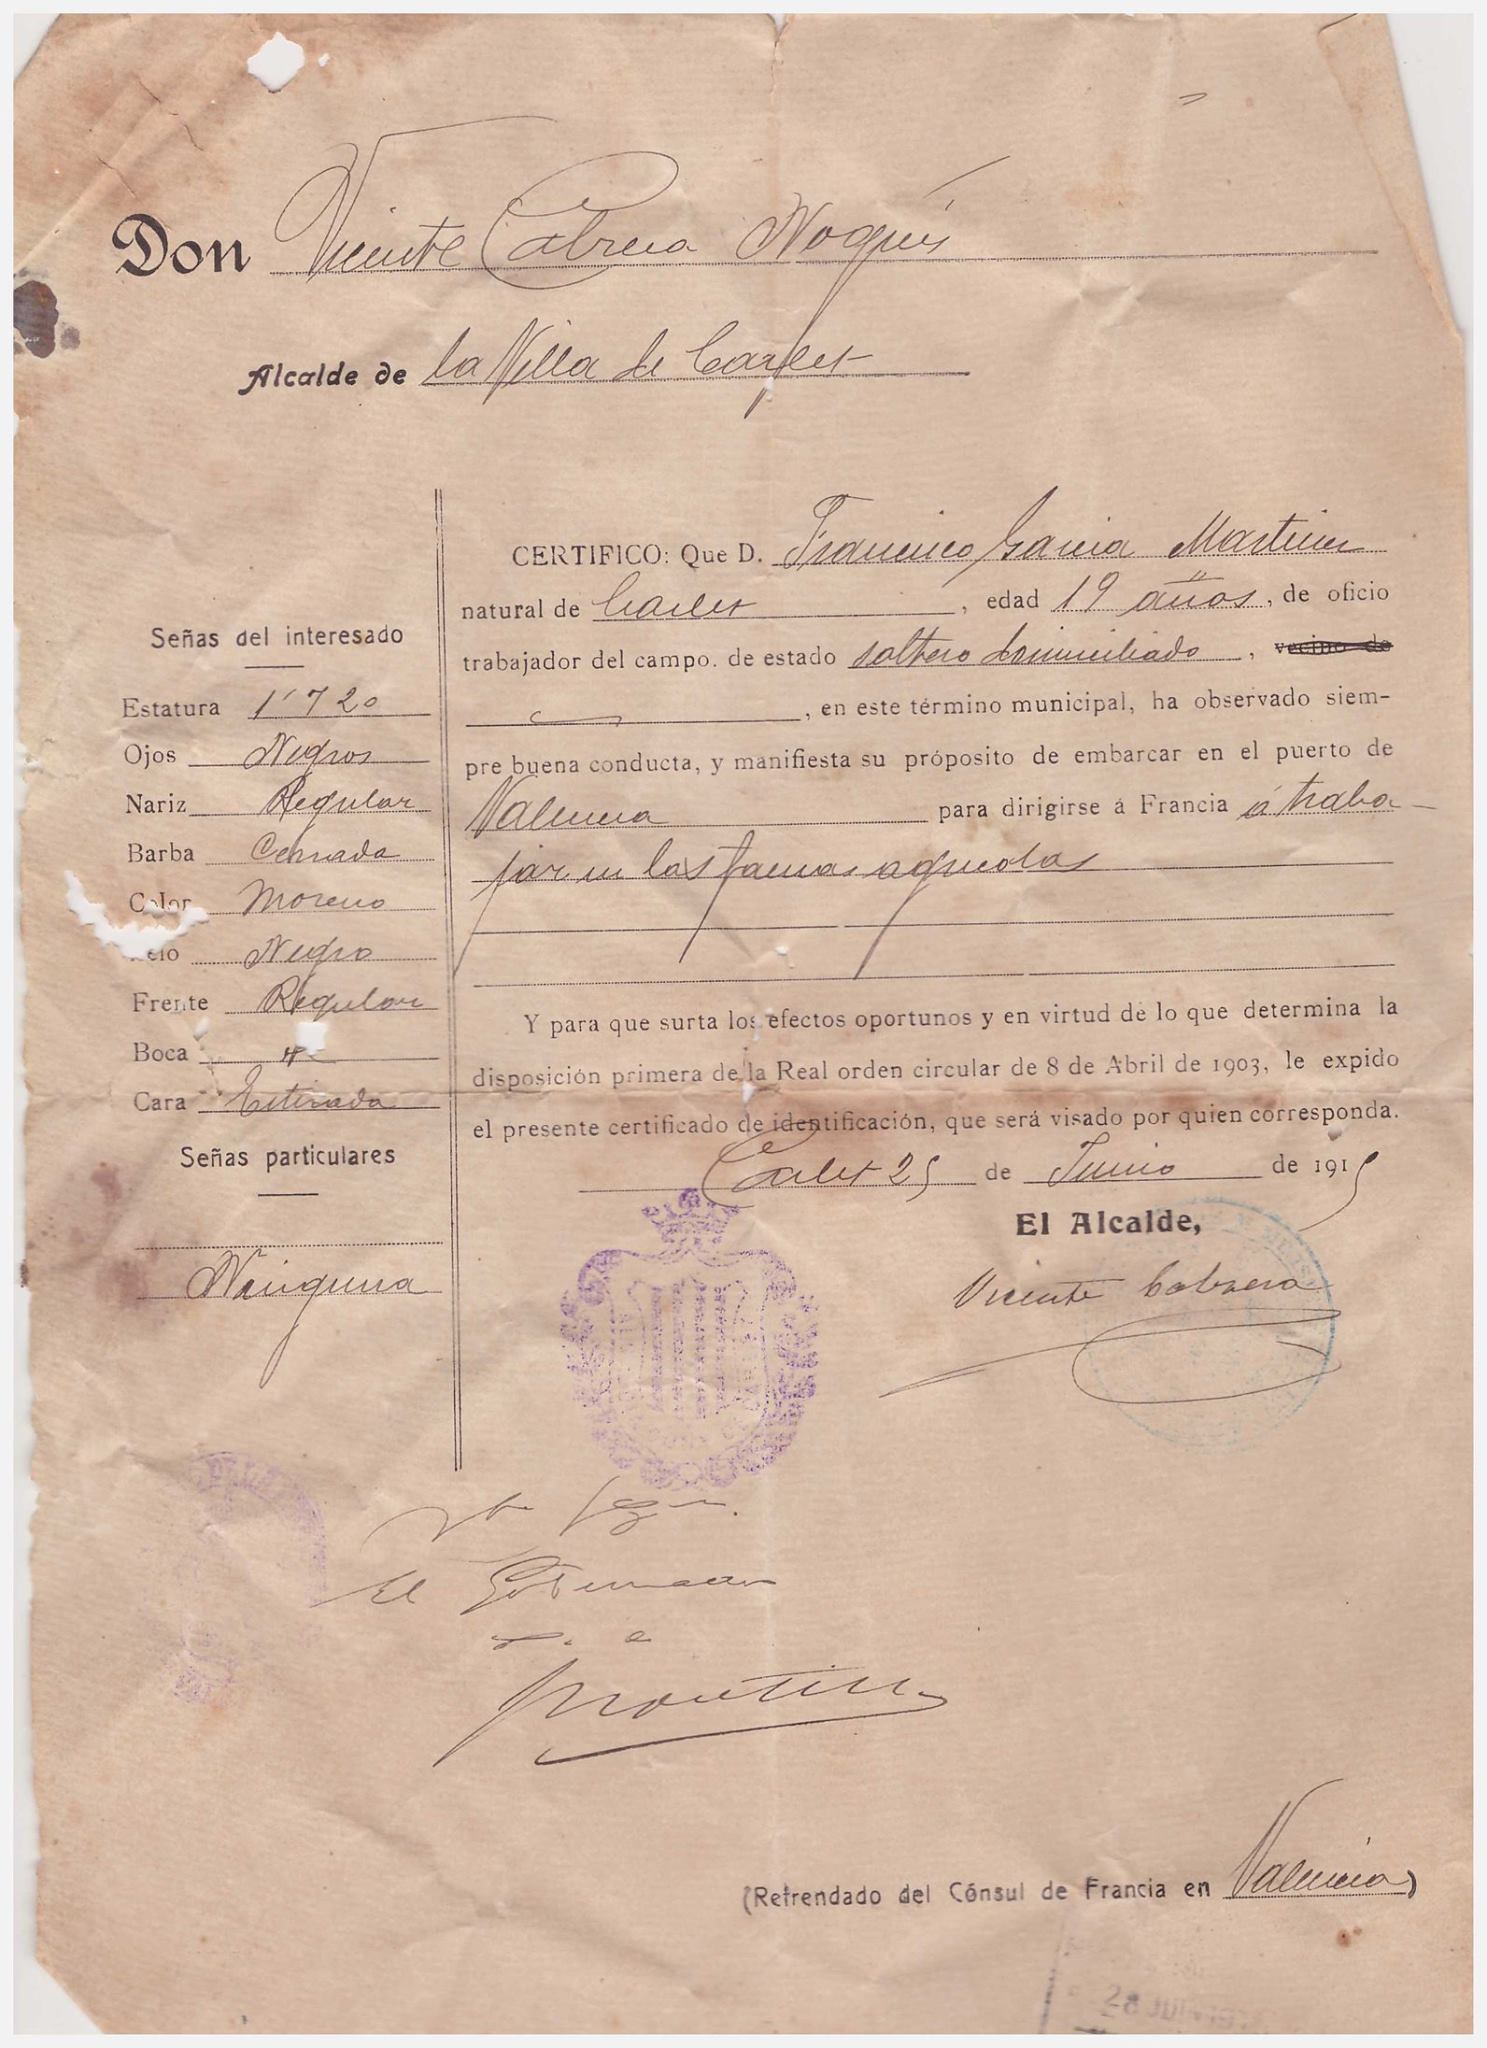 Don Vicente Cabrera Nogués
Alcalde de la Villa de Carlet
CERTIFICO: Que D. Francisco Garcia Martinez
natural de Carlet, edad 19 años, de oficio
trabajador del campo. de estado soltero domiciliado, vecino de
, en este término municipal, ha observado siem-
pre buena conducta, y manifiesta su próposito de embarcar en el puerto de
Valencia para dirigirse á Francia á traba-
jar en las faenas agricolas
Y para que surta los efectos oportunos y en virtud de lo que determina la
disposición primera de la Real orden circular de 8 de Abril de 1903, le expido
el presente certificado de identificación, que será visado por quien corresponda.
Carlet 25 de Junio de 1915
El Alcalde,
Vicente Cabrera
Señas del interesado
Estatura 1'720
Ojos Negros
Nariz Regular
Barba Cerrada
Color Moreno
Pelo Negro
Frente Regular
Boca
Cara Estirada
Señas particulares
Ninguna
El Gobernador
(Refrendado del Cónsul de Francia en Valencia)
28